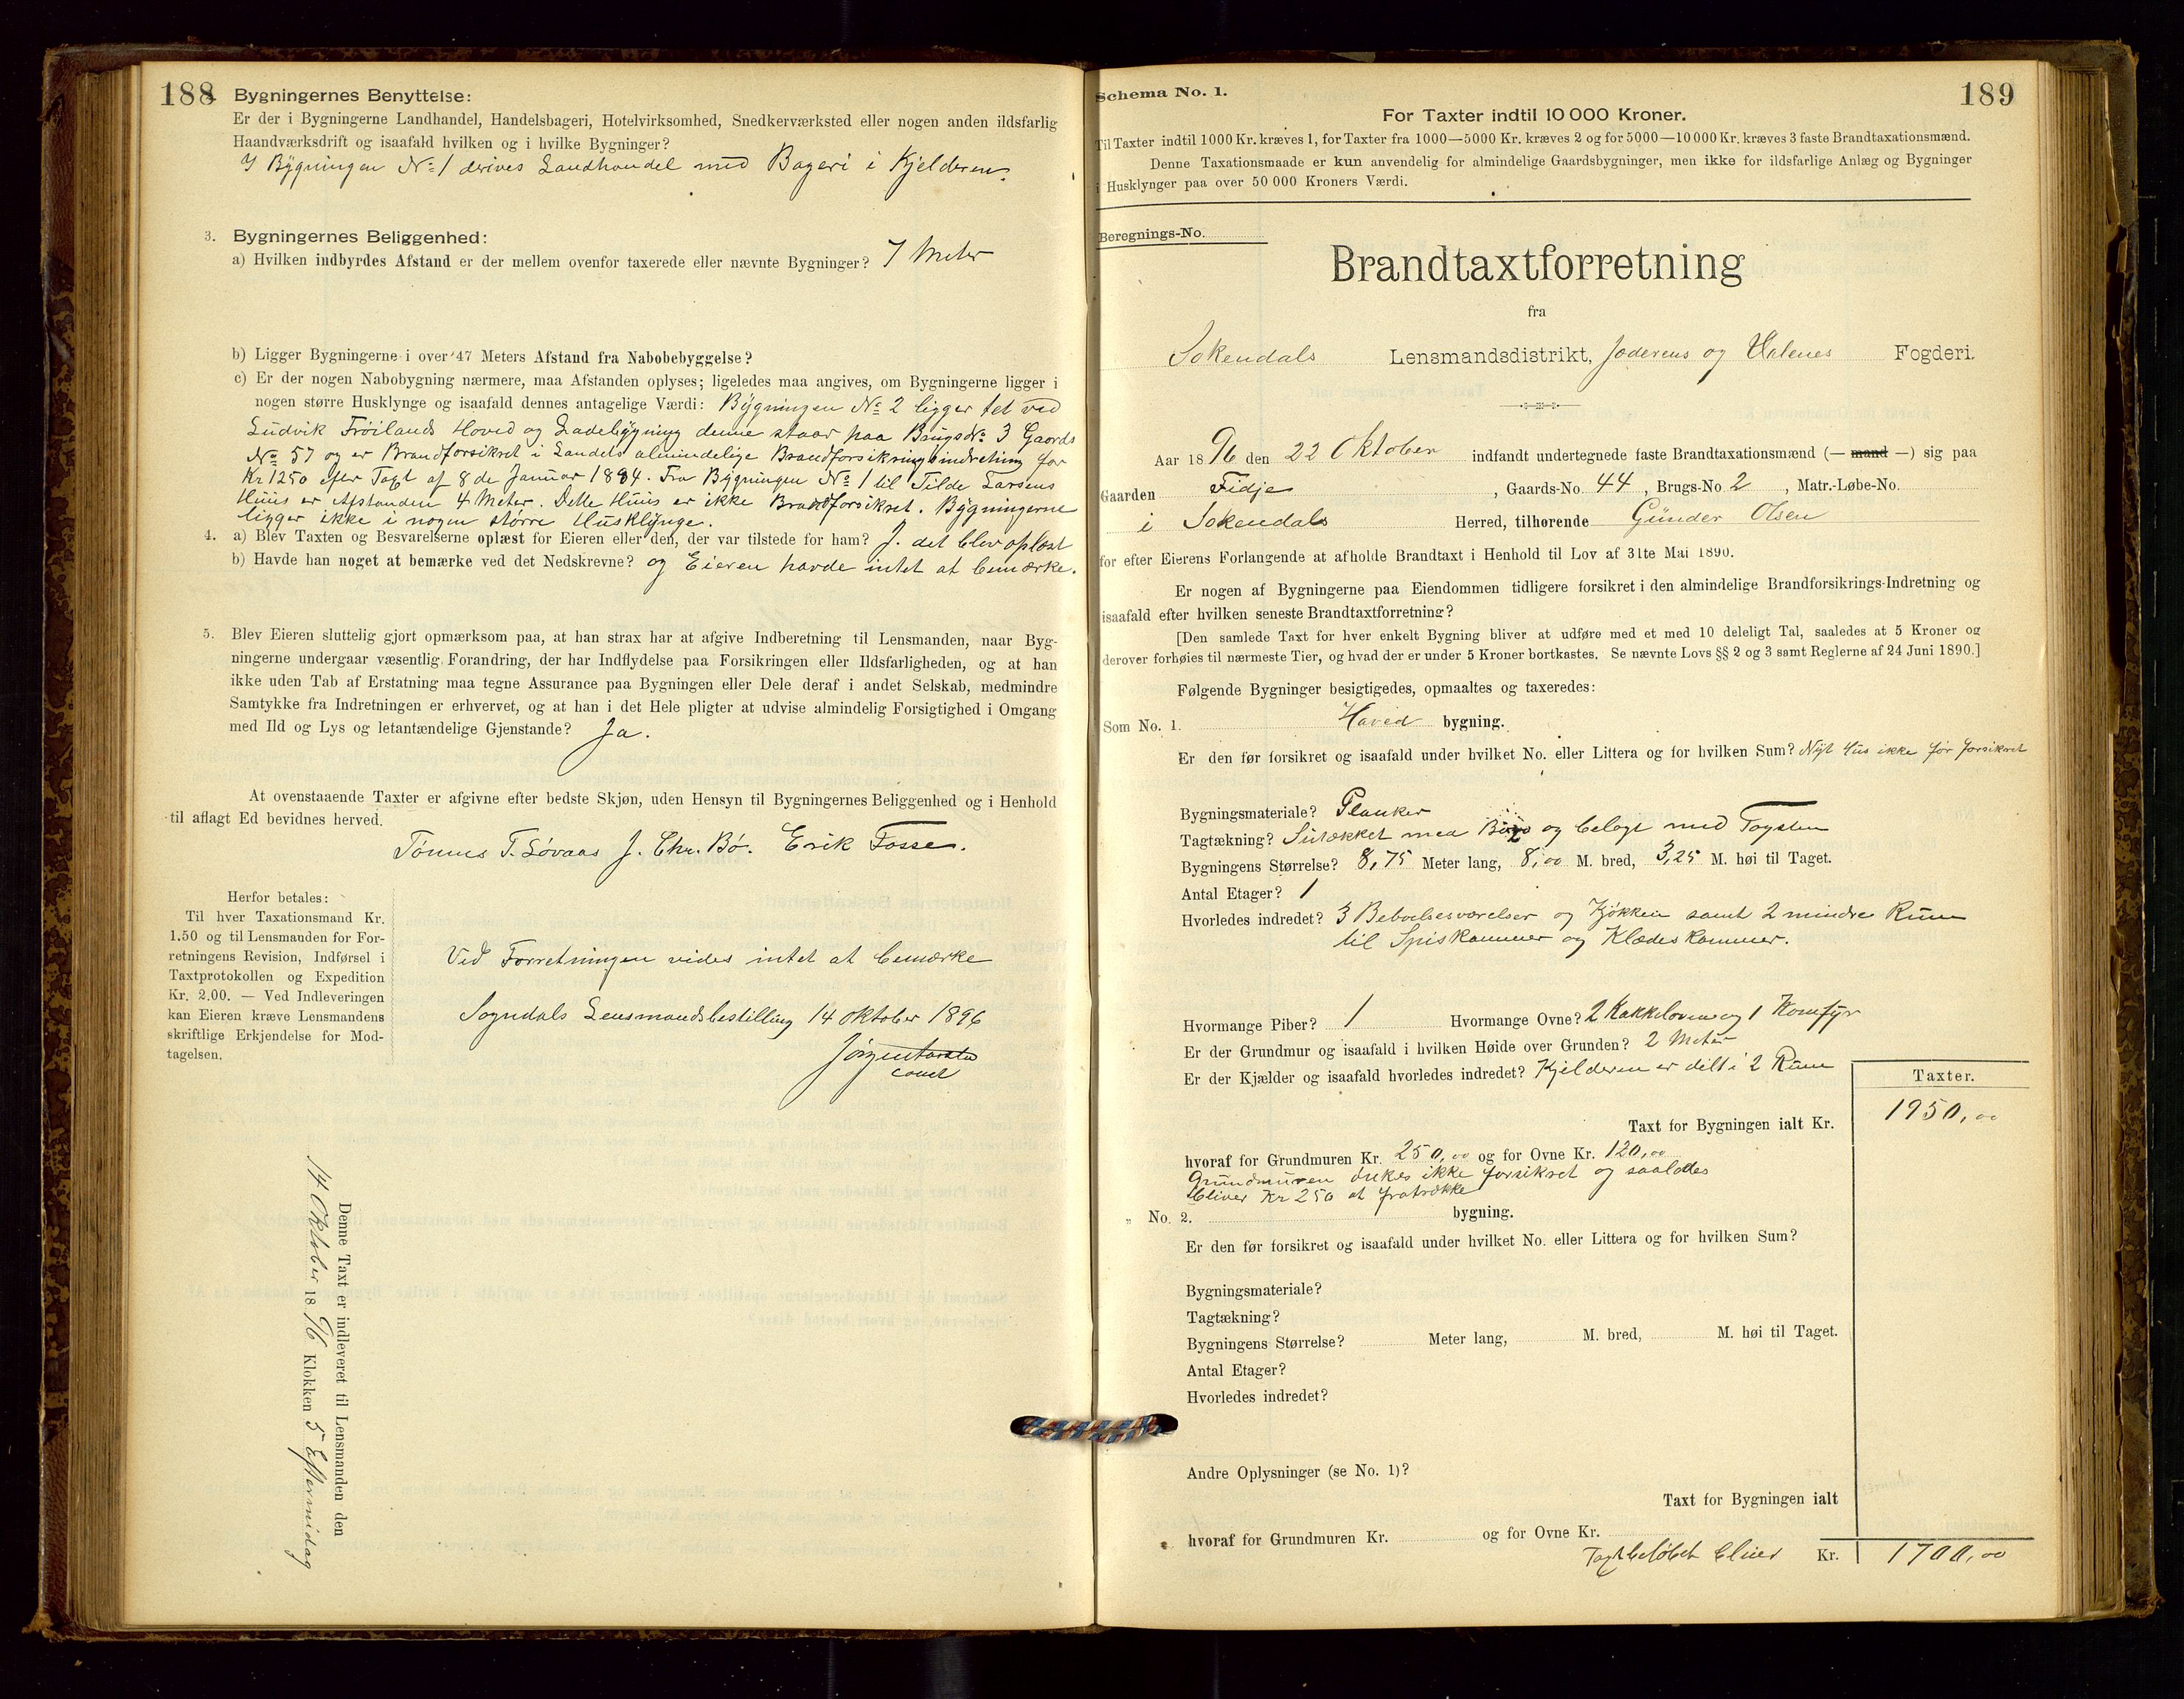 188
Bygningernes Benyttelse:
Er der i Bygningerne Landhandel, Handelsbageri, Hotelvirksomhed, Snedkerværksted eller nogen anden ildsfarlig
Haandværksdrift og isaafald hvilken og i hvilke Bygninger?
I Bygningen No 1 drives Landhandel med Bageri i Kjelderen.
3. Bygningernes Beliggenhed:
a) Hvilken indbyrdes Afstand er der mellem ovenfor taxerede eller nævnte Bygninger? 7 Meter
b) Ligger Bygningerne i over 47 Meters Afstand fra Nabobebyggelse?
c) Er der nogen Nabobygning nærmere, maa Afstanden oplyses; ligeledes maa angives, om Bygningerne ligger i
nogen større Husklynge og isaafald dennes antagelige Værdi: Bygningen No 2 ligger tet ved
Ludvik Frøilands Hoved og Ladebygning denne staar paa Brugs No 3 Gaards
No 57 og er Brandforsikret i Landets almindelige Brandforsikringsindretning for
Kr 1250 efter Taxt af 8de Januar 1884. Fra Bygningen No 1 til Tilde Larsens
Huus er Afstanden 4 Meter. Dette Huus er ikke Brandforsikret. Bygningerne
ligger ikke i nogen større Husklynge.
4. a) Blev Taxten og Besvarelserne oplæst for Eieren eller den, der var tilstede for ham? J. det blev oplæst
b) Havde han noget at bemærke ved det Nedskrevne? og Eieren havde intet at bemærke.
5. Blev Eieren sluttelig gjort opmærksom paa, at han strax har at afgive Indberetning til Lensmanden, naar Byg-
ningerne undergaar væsentlig Forandring, der har Indflydelse paa Forsikringen eller Ildsfarligheden, og at han
ikke uden Tab af Erstatning maa tegne Assurance paa Bygningen eller Dele deraf i andet Selskab, medmindre
Samtykke fra Indretningen er erhvervet, og at han i det Hele pligter at udvise almindelig Forsigtighed i Omgang
med Ild og Lys og letantændelige Gjenstande? Ja.
At ovenstaaende Taxter er afgivne efter bedste Skjøn, uden Hensyn til Bygningernes Beliggenhed og i Henhold
til aflagt Ed bevidnes herved.
Tønnes T. Løvaas J. Chr. Bø. Erik Fosse.
Herfor betales:
Til hver Taxationsmand Kr.
1.50 og til Lensmanden for For-
retningens Revision, Indførsel i
Taxtprotokollen og Expedition
Kr. 2.00. — Ved Indleveringen
kan Eieren kræve Lensmandens
skriftlige Erkjendelse for Mod-
tagelsen.
Ved Forretningen vides intet at bemærke
Sogndals Lensmandsbestilling 14 Oktober 1896
Denne Taxt er indleveret til Lensmanden den
14 Oktober 1896 Klokken 5 Eftermidag
189
Schema No. 1.
For Taxter indtil 10 000 Kroner.
Til Taxter indtil 1000 Kr. kræves 1, for Taxter fra 1000—5000 Kr. kræves 2 og for 5000—10 000 Kr. kræves 3 faste Brandtaxationsmænd.
Denne Taxationsmaade er kun anvendelig for almindelige Gaardsbygninger, men ikke for ildsfarlige Anlæg og Bygninger
i Husklynger paa over 50 000 Kroners Værdi.
Beregnings-No.
Brandtaxtforretning
fra
Sokendals Lensmandsdistrikt, Jæderens og Dalenes Fogderi.
Aar 1896 den 22 Oktober indfandt undertegnede faste Brandtaxationsmænd (— mand —) sig paa
Gaarden Fidje, Gaards-No. 44, Brugs-No. 2, Matr.-Løbe-No.
i Sokendals Herred, tilhørende Günder Olsen
for efter Eierens Forlangende at afholde Brandtaxt i Henhold til Lov af 31te Mai 1890.
Er nogen af Bygningerne paa Eiendommen tidligere forsikret i den almindelige Brandforsikrings-Indretning og
isaafald efter hvilken seneste Brandtaxtforretning?
[Den samlede Taxt for hver enkelt Bygning bliver at udføre med et med 10 deleligt Tal, saaledes at 5 Kroner og
derover forhøies til nærmeste Tier, og hvad der er under 5 Kroner bortkastes. Se nævnte Lovs §§ 2 og 3 samt Reglerne af 24 Juni 1890.]
Følgende Bygninger besigtigedes, opmaaltes og taxeredes:
Som No. 1. Hoved bygning.
Er den før forsikret og isaafald under hvilket No. eller Littera og for hvilken Sum? Nyt Hus ikke før forsikret
Bygningsmateriale? Planker
Tagtækning? Sutækket med og belagt med Tagsten
Bygningens Størrelse? 8,75 Meter lang, 8,00 M. bred, 3,25 M. høi til Taget.
Antal Etager? 1
Hvorledes indredet? 3 Beboelsesværelser og Kjøkken samt 2 mindre Rum
til Spiskammer og Klædeskammer.
Hvormange Piber? 1 Hvormange Ovne? 2 Kakkelovne og 1 Komfyr
Er der Grundmur og isaafald i hvilken Høide over Grunden? 2 Meter
Er der Kjælder og isaafald hvorledes indredet? Kjelderen er delt i 2 Rum
Taxter.
Taxt for Bygningen ialt Kr. 1950,00
hvoraf for Grundmuren Kr. 250,00 og for Ovne Kr. 120,00
Grundmuren ønskes ikke forsikret og saaledes
bliver Kr 250 at fratrække
„ No. 2. bygning.
Er den før forsikret og isaafald under hvilket No. eller Littera og for hvilken Sum?
Bygningsmateriale?
Tagtækning?
Bygningens Størrelse? Meter lang, M. bred, M. høi til Taget.
Antal Etager?
Hvorledes indredet?
Andre Oplysninger (se No. 1)?
Taxt for Bygningen ialt
hvoraf for Grundmuren Kr. og for Ovne Kr.
Taxtbeløbet bliver Kr. 1700,00